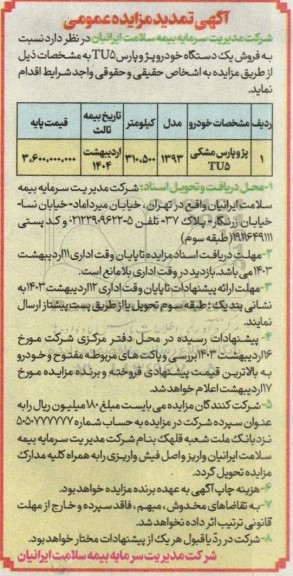 آگهی تمدید مزایده عمومی
شرکت مدیریت سرمایه بیمه سلامت ایرانیان در نظر دارد نسبت
به فروش یک دستگاه خودرو پژو پارس TU5 به مشخصات ذیل
از طریق مزایده به اشخاص حقیقی و حقوقی واجد شرایط اقدام
نماید.
ردیف مشخصات خودرو مدل کیلومتر تاریخ بیمه ثالث قیمت پایه
۱ پژو پارس مشکی TU5 ۱۳۹۳ ۳۱۰,۵۰۰ اردیبهشت ۱۴۰۴ ۳,۶۰۰,۰۰۰,۰۰۰
۱-محل دریافت و تحویل اسناد: شرکت مدیریت سرمایه بیمه
سلامت ایرانیان واقع در تهران، خیابان میرداماد- خیابان نسا-
خیابان زرنگار- پلاک ۳۷- تلفن ۵-۰۲۱۲۲۹۰۹۶۲۲ و کد پستی
۱۹۱۱۶۴۹۱۱۱ (طبقه سوم)
۲-مهلت دریافت اسناد مزایده تا پایان وقت اداری ۱۱اردیبهشت
۱۴۰۳ می باشد. بازدید در وقت اداری بلامانع است.
۳-مهلت ارائه پیشنهادات تا پایان وقت اداری ۱۲اردیبهشت ۱۴۰۳ به
نشانی بند یک؛ طبقه سوم تحویل یا از طریق پست پیشتاز ارسال
نمایند.
۴- پیشنهادات رسیده در محل دفتر مرکزی شرکت مورخ
۱۶اردیبهشت ۱۴۰۳ بررسی و پاکت های مربوطه مفتوح و خودرو
به بالاترین قیمت پیشنهادی فروخته و برنده مزایده مورخ
۱۷اردیبهشت اعلام خواهد شد.
۵-شرکت کنندگان مزایده می بایست مبلغ ۱۸۰ میلیون ریال را به
عنوان سپرده شرکت در مزایده به حساب شماره
نزد بانک ملت شعبه قلهک بنام شرکت مدیریت سرمایه بیمه
سلامت ایرانیان واریز و اصل فیش واریزی را به همراه کلیه مدارک
مزایده تحویل گردد.
۶-هزینه چاپ آگهی به عهده برنده مزایده خواهد بود.
۷-به تقاضاهای مخدوش، مبهم، فاقد سپرده و خارج از مهلت
قانونی ترتیب اثر داده نخواهد شد.
۸-شرکت در رد یا قبول هر یک از پیشنهادات مختار خواهد بود.
شرکت مدیریت سرمایه بیمه سلامت ایرانیان